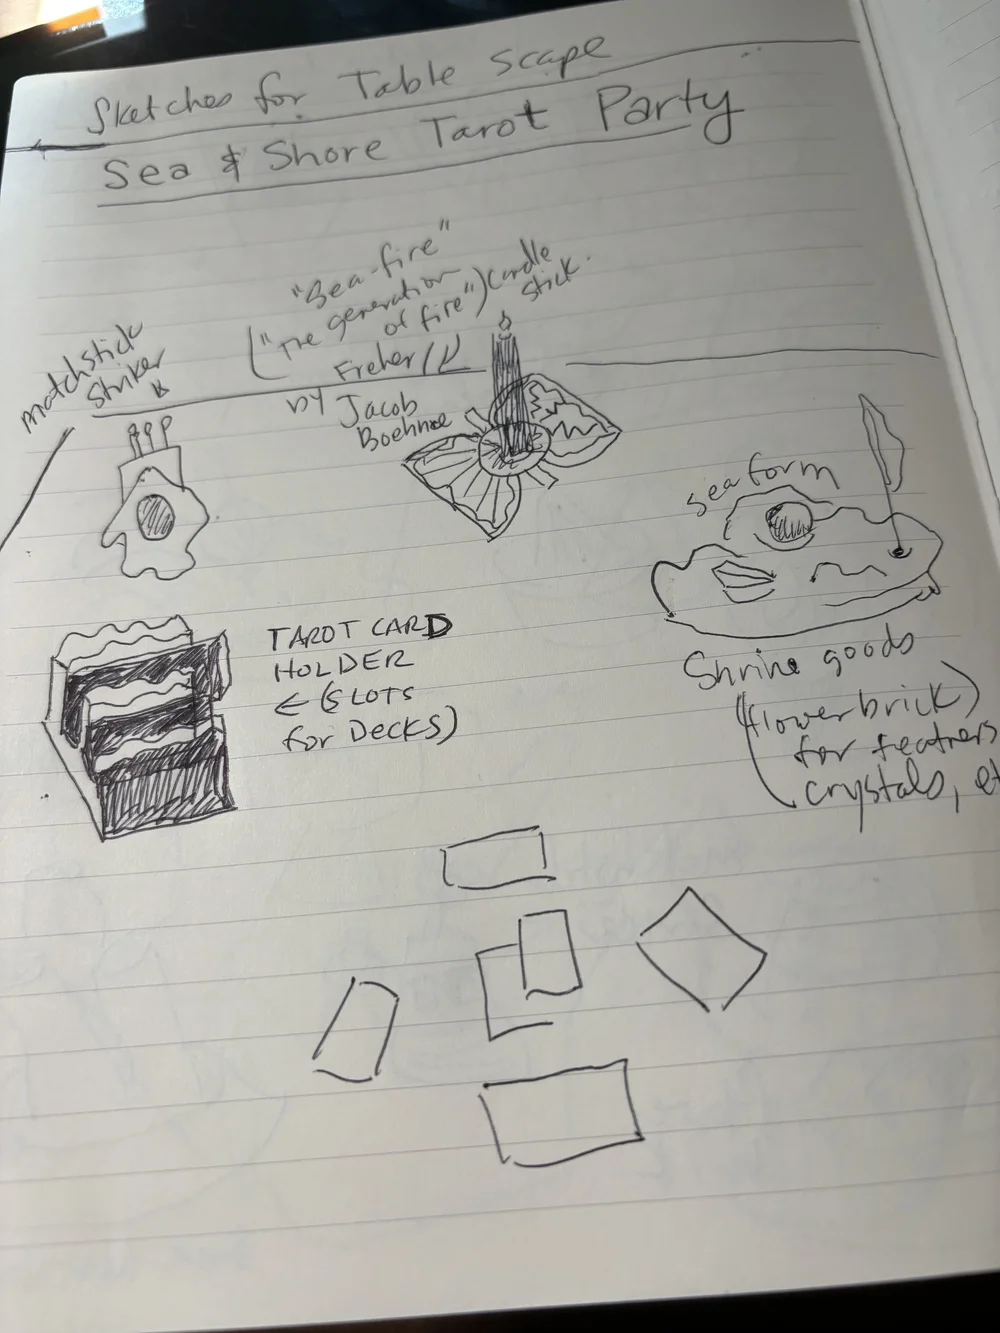 Sketches for Table Scape
Sea & Shore Tarot Party
matchstick
Striker
"Sea-fire"
("The generation
of fire")
Candle
Stick.
Freher
by Jacob
Boehme
sea form
TAROT CARD
HOLDER
← (SLOTS
for Decks)
Shrine goods
(flower brick)
for feathers
crystals, et